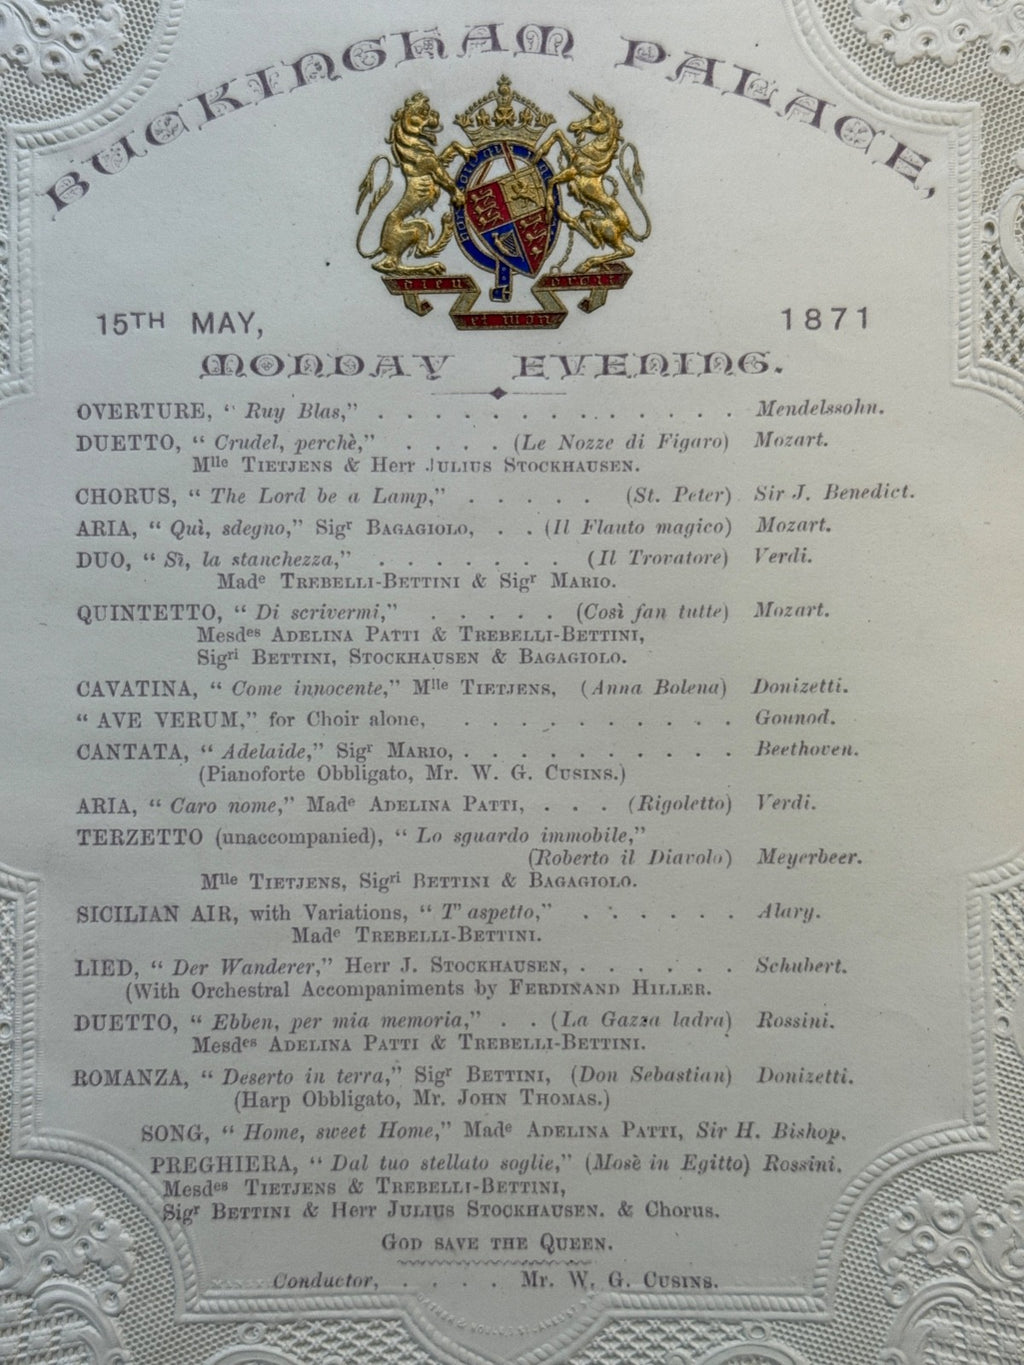 BUCKINGHAM PALACE,
dieu et mon droit
15TH MAY, 1871
MONDAY EVENING.
OVERTURE, “ Ruy Blas,” . . . . . . . . . . . . . Mendelssohn.
DUETTO, “ Crudel, perchè,” . . . . (Le Nozze di Figaro) Mozart.
Mlle TIETJENS & Herr JULIUS STOCKHAUSEN.
CHORUS, “ The Lord be a Lamp,” . . . . . (St. Peter) Sir J. Benedict.
ARIA, “ Quì, sdegno,” Sigr BAGAGIOLO, . . (Il Flauto magico) Mozart.
DUO, “ Sì, la stanchezza,” . . . . . . . (Il Trovatore) Verdi.
Made TREBELLI-BETTINI & Sigr MARIO.
QUINTETTO, “ Di scrivermi,” . . . . . (Così fan tutte) Mozart.
Mesdes ADELINA PATTI & TREBELLI-BETTINI,
Sigri BETTINI, STOCKHAUSEN & BAGAGIOLO.
CAVATINA, “ Come innocente,” Mlle TIETJENS, (Anna Bolena) Donizetti.
“ AVE VERUM,” for Choir alone, . . . . . . . . . . Gounod.
CANTATA, “ Adelaide,” Sigr MARIO, . . . . . . . . . . Beethoven.
(Pianoforte Obbligato, Mr. W. G. CUSINS.)
ARIA, “ Caro nome,” Made ADELINA PATTI, . . . (Rigoletto) Verdi.
TERZETTO (unaccompanied), “ Lo sguardo immobile,”
(Roberto il Diavolo) Meyerbeer.
Mlle TIETJENS, Sigri BETTINI & BAGAGIOLO.
SICILIAN AIR, with Variations, “ T’ aspetto,” . . . . . . Alary.
Made TREBELLI-BETTINI.
LIED, “ Der Wanderer,” Herr J. STOCKHAUSEN, . . . . . . Schubert.
(With Orchestral Accompaniments by FERDINAND HILLER.
DUETTO, “ Ebben, per mia memoria,” . . (La Gazza ladra) Rossini.
Mesdes ADELINA PATTI & TREBELLI-BETTINI.
ROMANZA, “ Deserto in terra,” Sigr BETTINI, (Don Sebastian) Donizetti.
(Harp Obbligato, Mr. JOHN THOMAS.)
SONG, “ Home, sweet Home,” Made ADELINA PATTI, Sir H. Bishop.
PREGHIERA, “ Dal tuo stellato soglie,” (Mosè in Egitto) Rossini.
Mesdes TIETJENS & TREBELLI-BETTINI,
Sigr BETTINI & Herr JULIUS STOCKHAUSEN. & Chorus.
GOD SAVE THE QUEEN.
Conductor, . . . . Mr. W. G. CUSINS.